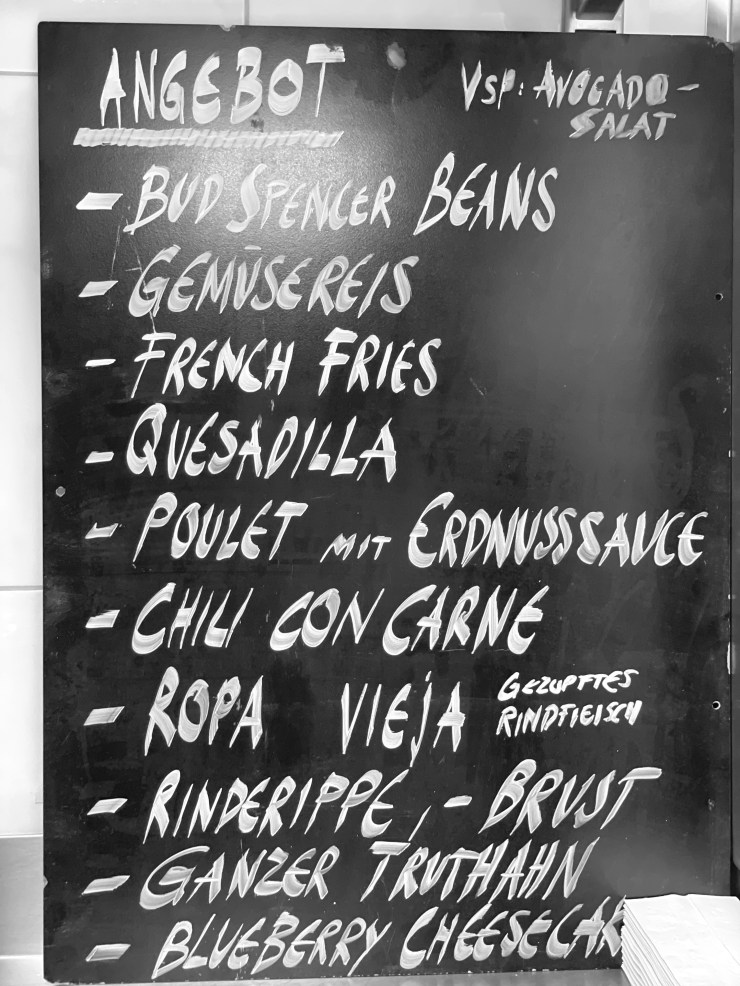 ANGEBOT
VSP: AVOCADO-
SALAT
- BUD SPENCER BEANS
- GEMÜSEREIS
- FRENCH FRIES
- QUESADILLA
- POULET MIT ERDNUSSSAUCE
- CHILI CON CARNE
- ROPA VIEJA
GEZUPFTES
RINDFLEISCH
- RINDERIPPE, - BRUST
- GANZER TRUTHAHN
- BLUEBERRY CHEESECAK